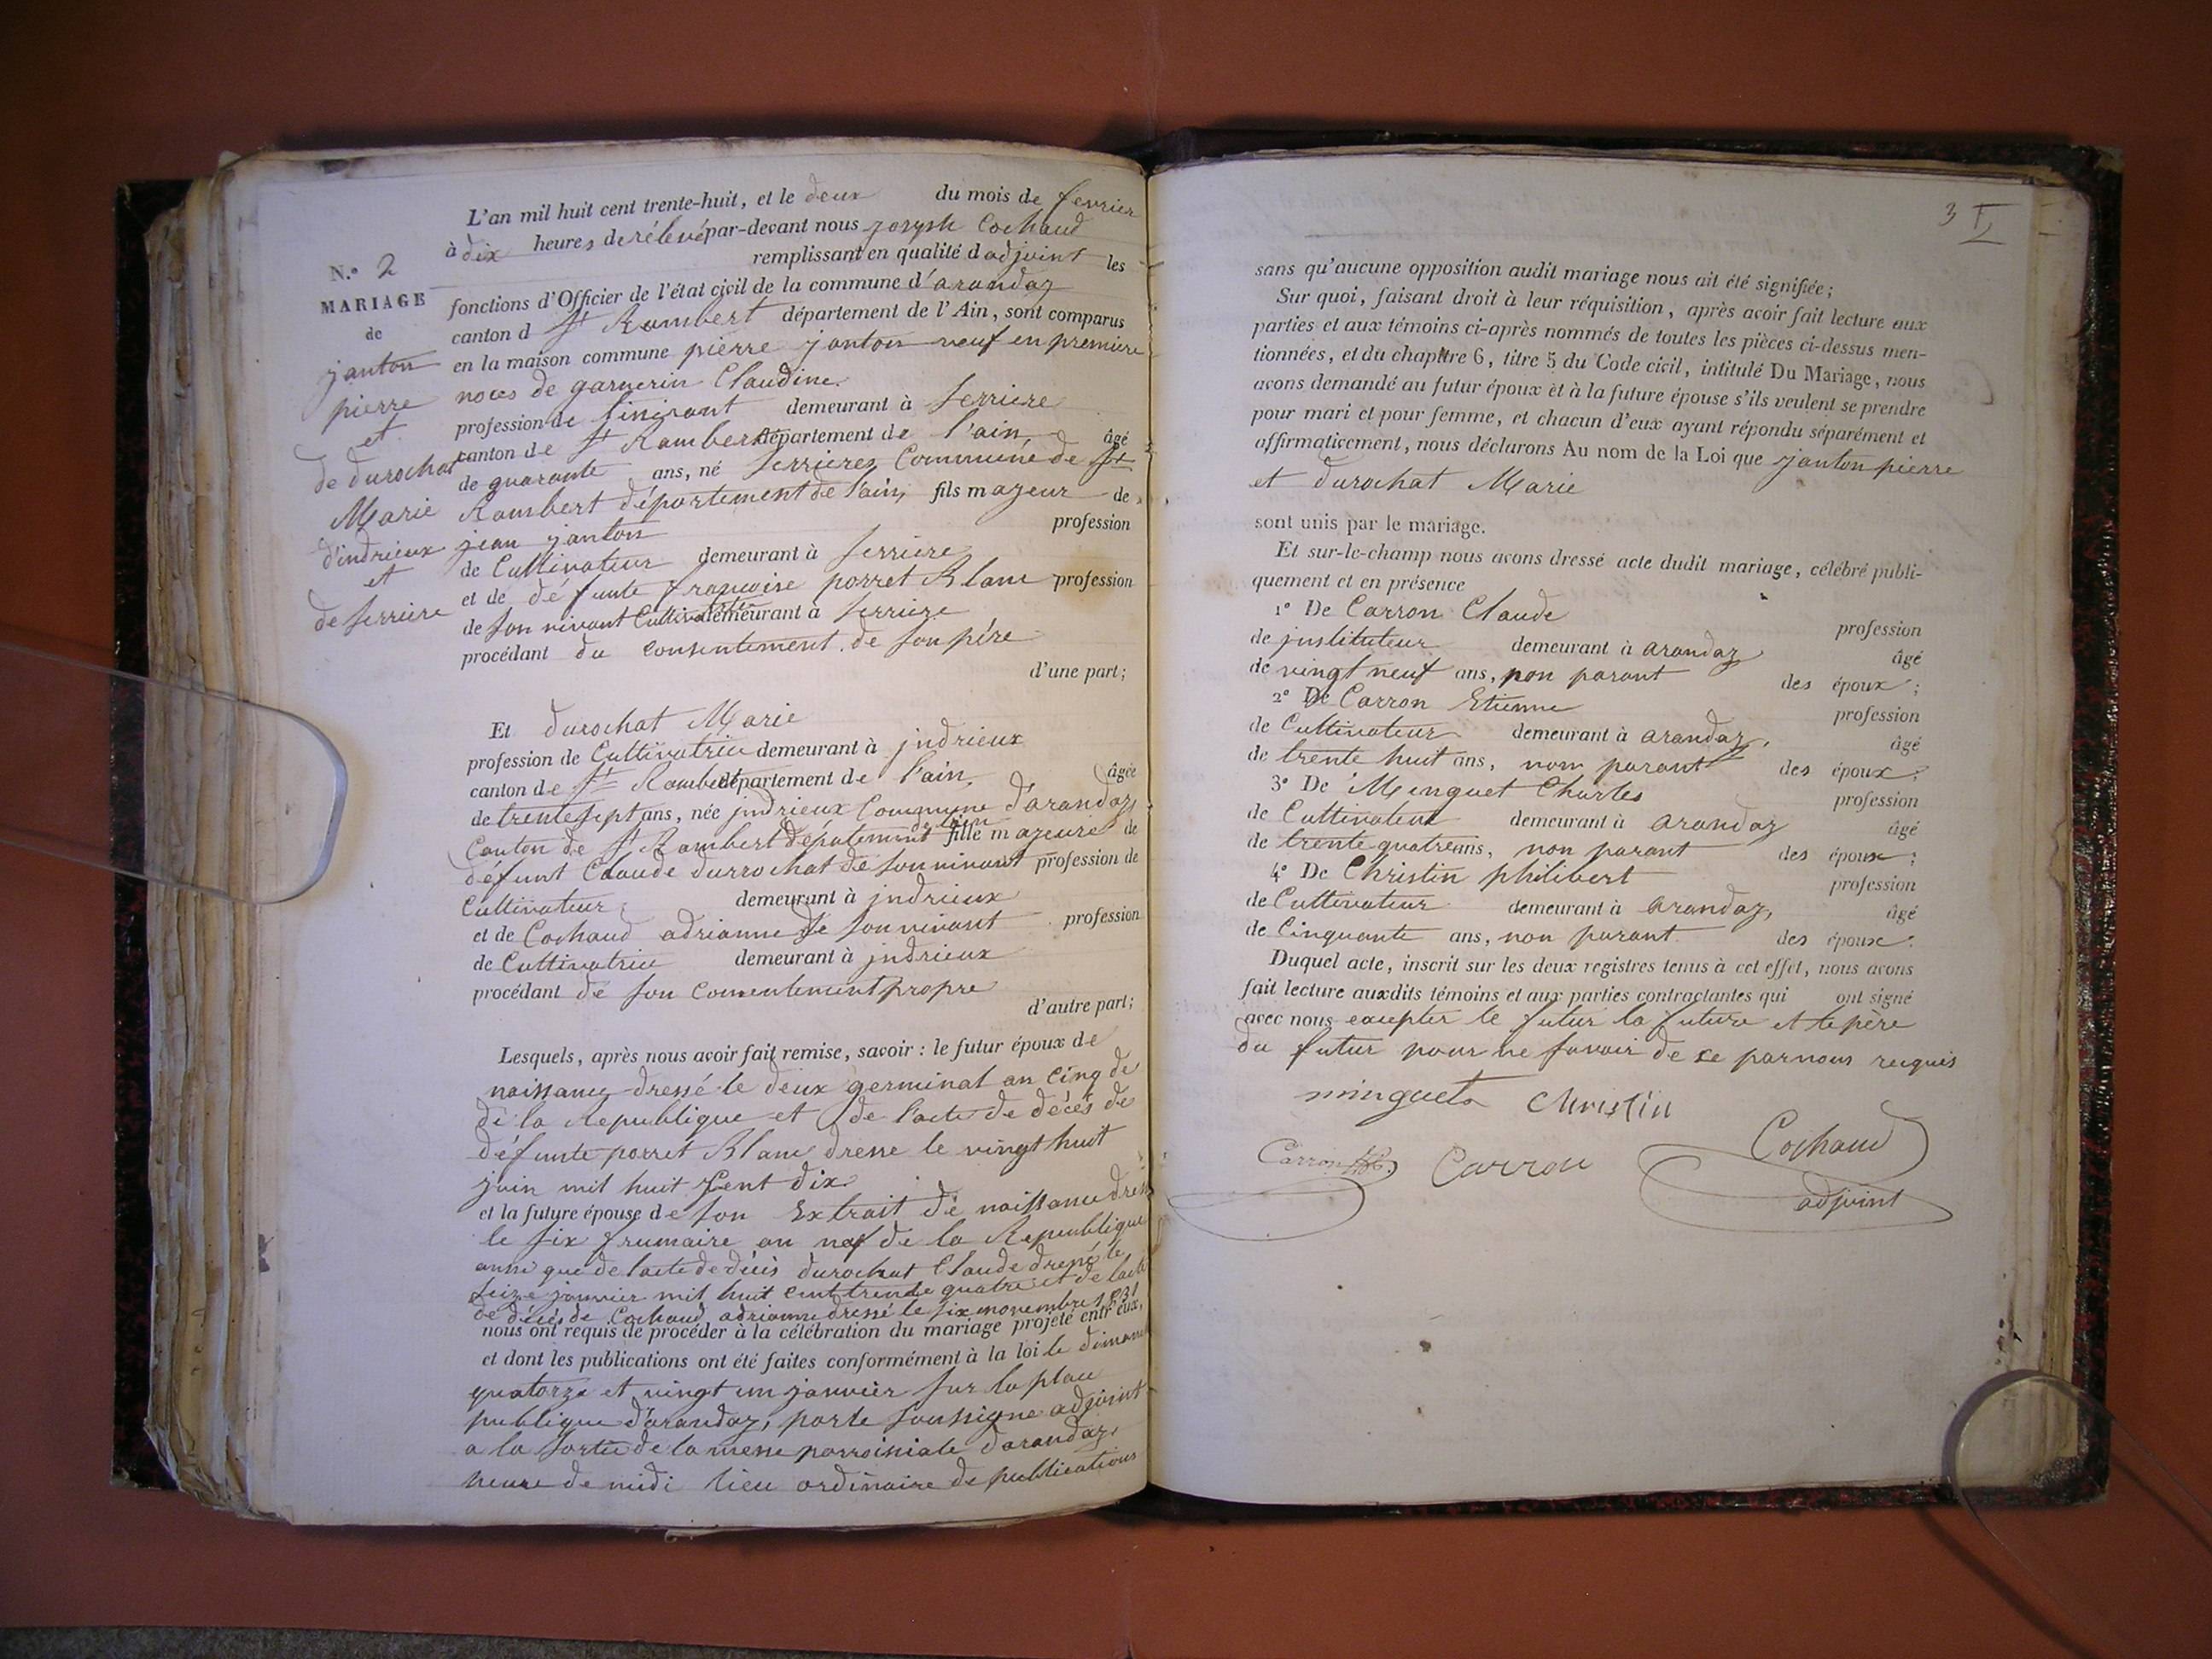 N.º 2
MARIAGE
de
janton
pierre
et
de durochat
Marie
d'indrieux
et
de serriere
L'an mil huit cent trente-huit, et le deux du mois de fevrier
à dix heures de rélevé par-devant nous joseph Cochaud
remplissant en qualité d adjoint les
fonctions d'Officier de l'état civil de la commune d'arandaz
canton d St Rambert département de l'Ain, sont comparus
en la maison commune pierre janton veuf en premiere
noces de garnerin Claudine
profession de demeurant à serriere
canton de St Rambert département de l'ain âgé
de quarante ans, né serrieres Commune de St
Rambert département de l'ain, fils majeur de
jean janton profession
de Cultivateur demeurant à serriere
et de défunte françoise porret Blanc profession
de son vivant Cultivatrice demeurant à serriere
procédant du consentement de son père
d'une part;
Et durochat Marie
profession de Cultivatrice demeurant à jndrieux
canton de St Rambert département de l'ain, âgée
de trente sept ans, née jndrieux Commune d'arandaz,
Canton de St Rambert département de l'ain fille majeure de
défunt Claude durrochat de son vivant profession de
Cultivateur demeurant à jndrieux
et de Cochaud adrianne de son vivant profession
de Cultivatrice demeurant à jndrieux
procédant de son consentement propre
d'autre part;
Lesquels, après nous avoir fait remise, savoir : le futur époux de
naissance dressé le deux germinal an cinq de
de la Republique et de l'acte de décès de
défunte porret Blanc dresse le vingt huit
juin mil huit Cent dix
et la future épouse de son Extrait de naissance dressé
le six frumaire an nef de la Republique
ansi que de lacte de décis durochat Claude dressé le
seize janvier mil huit cent trente quatre et de lacte
de décés de Cochaud adrianne dressé le six novembre 1831
nous ont requis de procéder à la célébration du mariage projeté entr'eux,
et dont les publications ont été faites conformément à la loi le dimanche
quatorze et vingt un janvier sur la place
publique d'arandaz, parle soussigne adjoint
a la sortie de la messe parroissiale d'arandaz,
heure de midi lieu ordinaire de publications
3
sans qu'aucune opposition audit mariage nous ait été signifiée;
Sur quoi, faisant droit à leur réquisition, après avoir fait lecture aux
parties et aux témoins ci-après nommés de toutes les pièces ci-dessus men-
tionnées, et du chapitre 6, titre 5 du Code civil, intitulé Du Mariage, nous
avons demandé au futur époux et à la future épouse s'ils veulent se prendre
pour mari et pour femme, et chacun d'eux ayant répondu séparément et
affirmativement, nous déclarons Au nom de la Loi que janton pierre
et durochat Marie
sont unis par le mariage.
Et sur-le-champ nous avons dressé acte dudit mariage, célébré publi-
quement et en présence
1º De Carron Claude profession
de jnstituteur demeurant à arandaz âgé
de vingt neuf ans, non parant des époux;
2º De Carron Etienne profession
de Cultivateur demeurant à arandaz, âgé
de trente huit ans, nom parant des époux;
3º De Minguet Charles profession
de Cultivateur demeurant à arandaz âgé
de trente quatre ans, non parant des époux;
4º De Christin philibert profession
de Cultivateur demeurant à arandaz, âgé
de Cinquante ans, non parant des époux.
Duquel acte, inscrit sur les deux registres tenus à cet effet, nous avons
fait lecture auxdits témoins et aux parties contractantes qui ont signé
avec nous excepter le futur la future et le père
du futur pour ne savoir de ce par nous requis
minguet Christin
Carron Carron Cochaud
adjoint